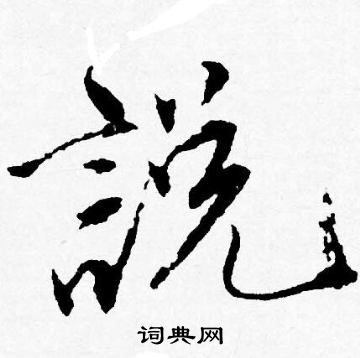 說
词典网